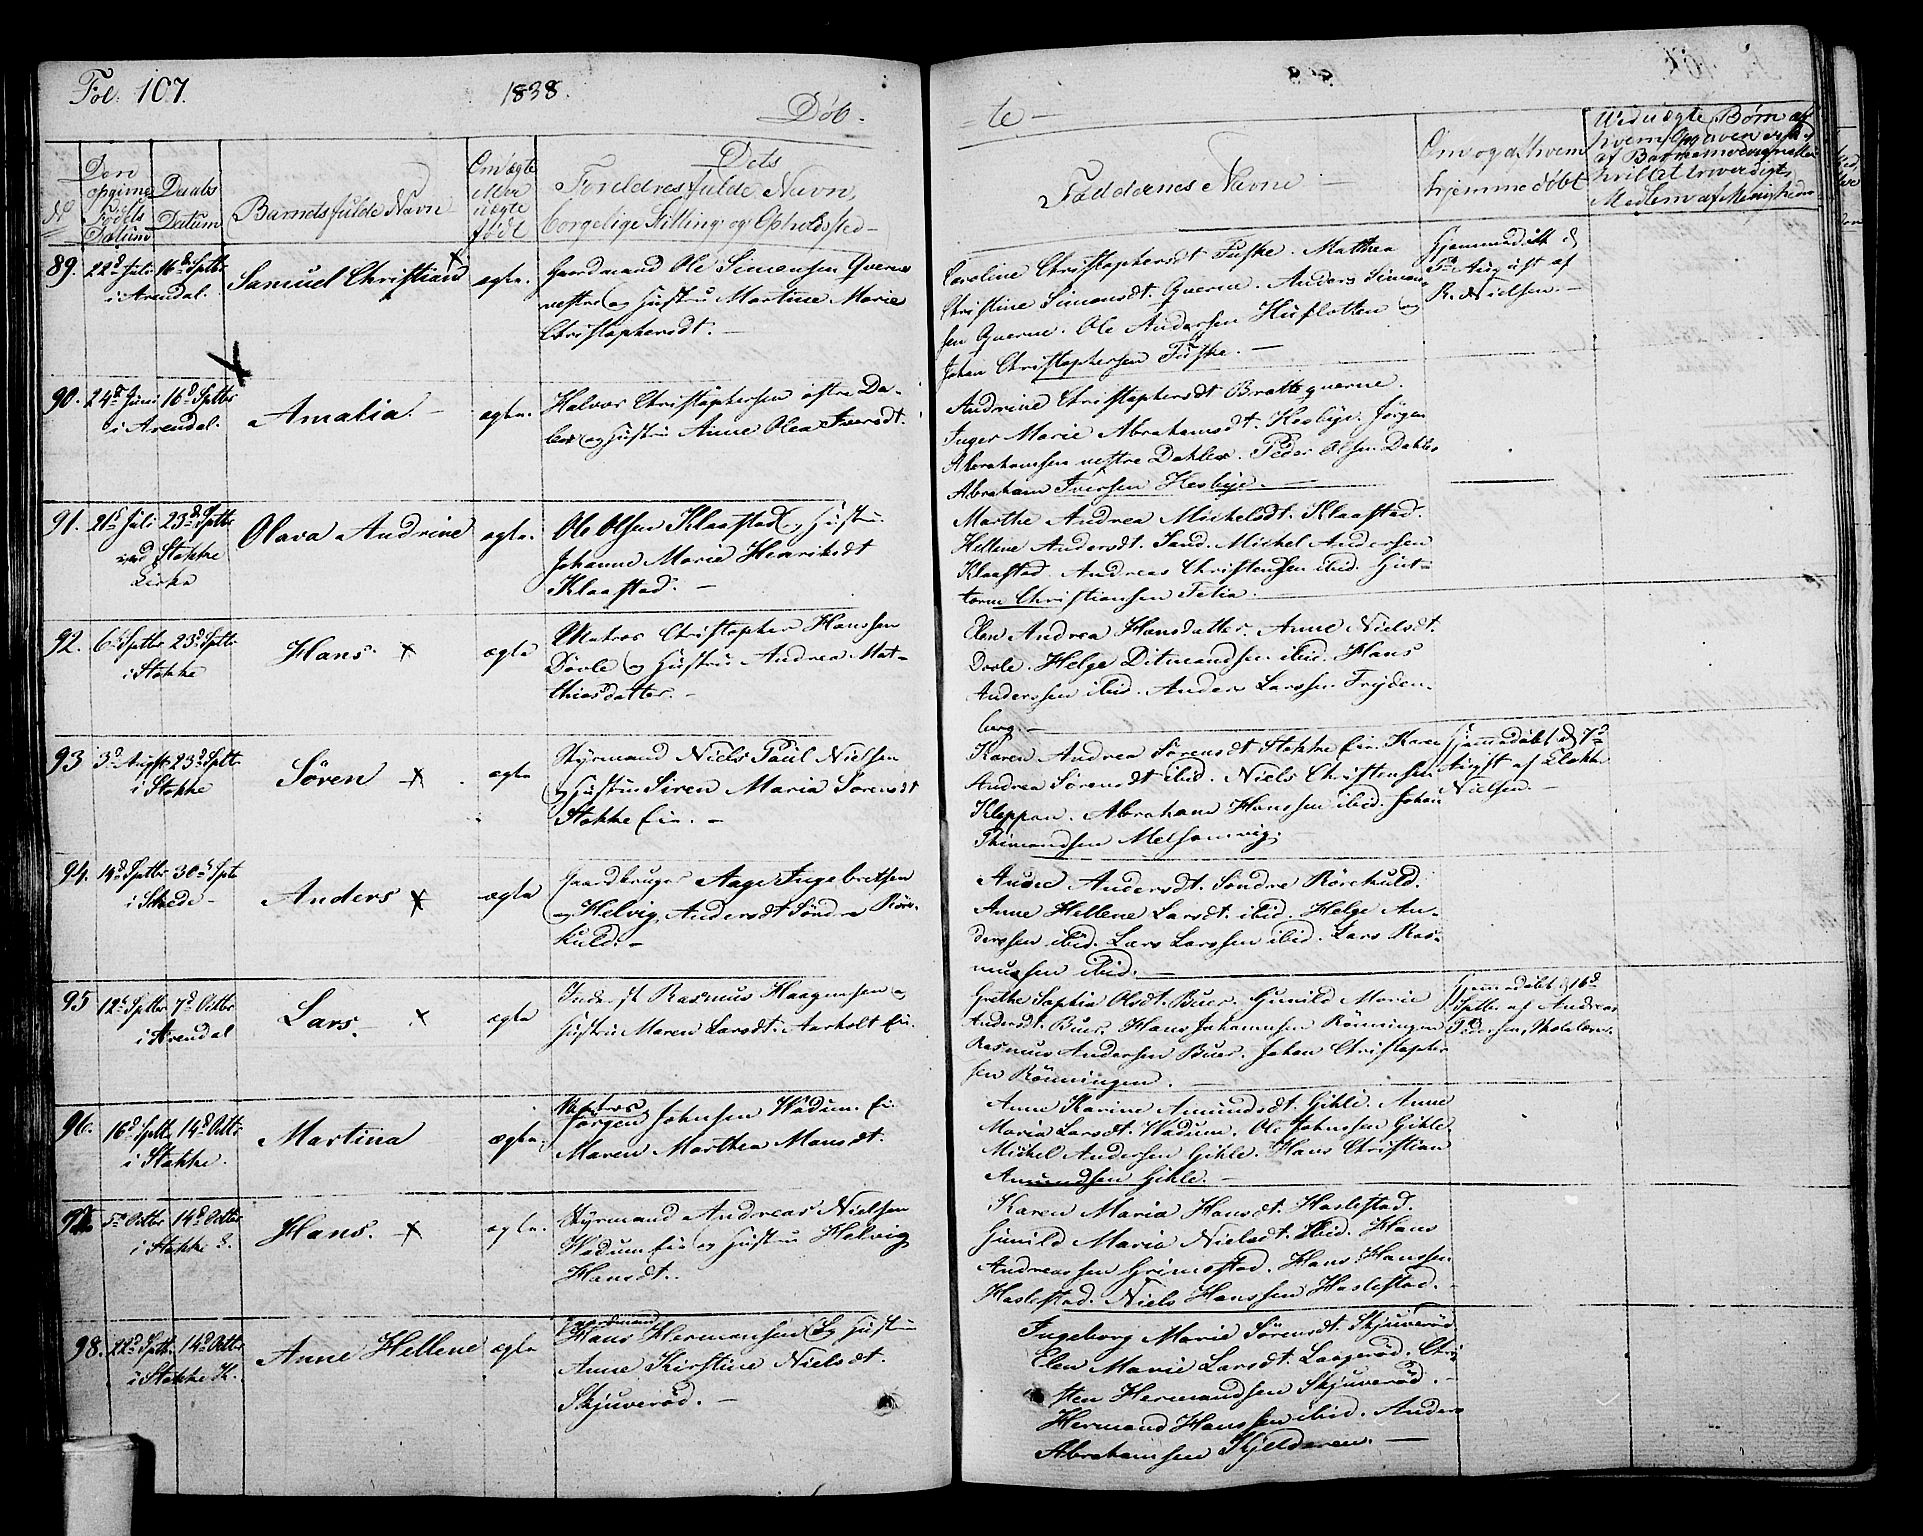 Fol: 107.
1838.
Døb-
te-
No
Den opgivne Føds Datum
Daabs Datum
Barnets fulde Navn
Om ægte eller uægte født
Dets
Forældres fulde Navn,
borgelige Stilling og Opholdssted-
Faddernes Navne
Om og af hvem
hjemmedøbt
Ved uægte Børn af
hvem Opgaven
af Barnemoder
Medlem af Menigheden
89. 22d Juli 16d Septbr Samuel Christian ægte.
i Arendal.
Gaardmand Ole Simonsen Querne
nestre og Hustru Martine Marie
Christophersdt.-
Caroline Christophersdt Fuske. Mathea
Christine Simonsdt. Querne. Anders Simon-
sen Querne. Ole Andersen Huflotten og
Johan Christophersen Fuske.-
Hjemmedøbt d
August af
R. Nielsen.-
90. 24d Juni 16d Septbr Amalia.- ægte.
i Arendal.
Halvor Christophersen østre Da-
len og Hustru Anne Olea Iversdt.
Andrine Christophersdt Bratte querne.
Inger Marie Abrahamsdt. Hesbye. Jørgen
Abrahamsen nestre Dahlen. Peder Olsen Dahlen
Abraham Iversen Hesbye.-
91. 21d Juli 23d Septbr Olava Andrine ægte.
ved Stokke
Kirke
Ole Olsen Klaastad og Hustru
Johanne Marie Henriksdt
Klaastad.-
Marthe Andrea Mickelsdt. Klaastad.
Hellene Andersdt. Sand. Mickel Andersen
Klaastad. Andreas Christensen ibid. Gut-
torm Christiansen Fetia.-
92. 6d Septbr 23d Septbr Hans. x ægte
i Stokke
Matros Christopher Hanssen
Dørle og Hustru Andrea Mat-
thiasdatter.-
Elen Andrea Hansdatter. Anne Nielsdt.
Dørle. Helge Ditmandsen ibid. Hans
Anderssen ibid. Anders Larssen Fryden-
berg.-
93 3d August 23d Septbr Søren x ægte
i Stokke
Styrmand Niels Paul Nielsen
og Hustru Siren Maria Sørensdt
Stokke Eie.-
Karen Andrea Sørensdt Stokke Eie. Karen
Andrea Sørensdt ibid. Niels Christensen
Kleppan. Abraham Hanssen ibid. Johan
Thimandsen Melsomvig.
Hjemmedøbt d 7d
August af Klokker
Nielsen.-
94. 14d Septbr 30d Sept Anders x ægte
i Skede-
Gaardbruger Aage Ingebretsen
og Helvig Andersdt Søndre Röre-
kuld.-
Anne Andersdt. Söndre Rörekuld.
Anne Hellene Larsdt. ibid. Helge An-
derssen ibid. Lars Larssen ibid. Lars Ras-
mussen ibid.-
95 12d Septbr 7d Octbr Lars. x ægte
i Arendal
Inderst Rasmus Haagensen og
Hustru Maren Larsdt. Aarholt Eie.
Grethe Sophia Olsdt. Buer. Gunild Marie
Andersdt. Buer. Hans Johannesen Rönningen
Rasmus Andersen Buer. Johan Christopher
sen Rönningen.-
Hjemmedøbt d 16d
Septbr af Andreas
Pedersen, Skolelærer.
96. 16d Septbr 14d Octbr Martina ægte.
i Stokke.
Matros
Jörgen Johnsen Wadum Eie
Maren Marthea Mansdt.
Anne Karine Amundsdt. Gihle. Anne
Maria Larsdt. Wadum. Ole Johnssen Gihle.
Mickel Andersen Gihle. Hans Christian
Amundsen Gihle.-
97. 5d Octbr 14d Octbr Hans. x ægte.
i Stokke K.
Styrmand Andreas Nielsen
Wadum Eie og Hustru Helvig
Hansdt.
Karen Maria Hansdt. Haslestad.
Gunild Maria Nielsdt. ibid. Hans
Andreassen Grimestad. Hans Hanssen
Haslestad. Niels Hanssen Haslestad.-
98. 22d Septbr 14d Octbr Anne Hellene ægte
i Stokke K.
Gaardmand
Hans Hermansen og Hustru
Anne Kirstine Nielsdt.
Skjuveröd.-
Ingeborg Marie Sörensdt. Skjuveröd
Elen Marie Larsdt. Laageröd. Chri
sten Hermandsen Skjuveröd.-
Hermand Hanssen ibid. Anders
Abrahamsen Kjelderen.-